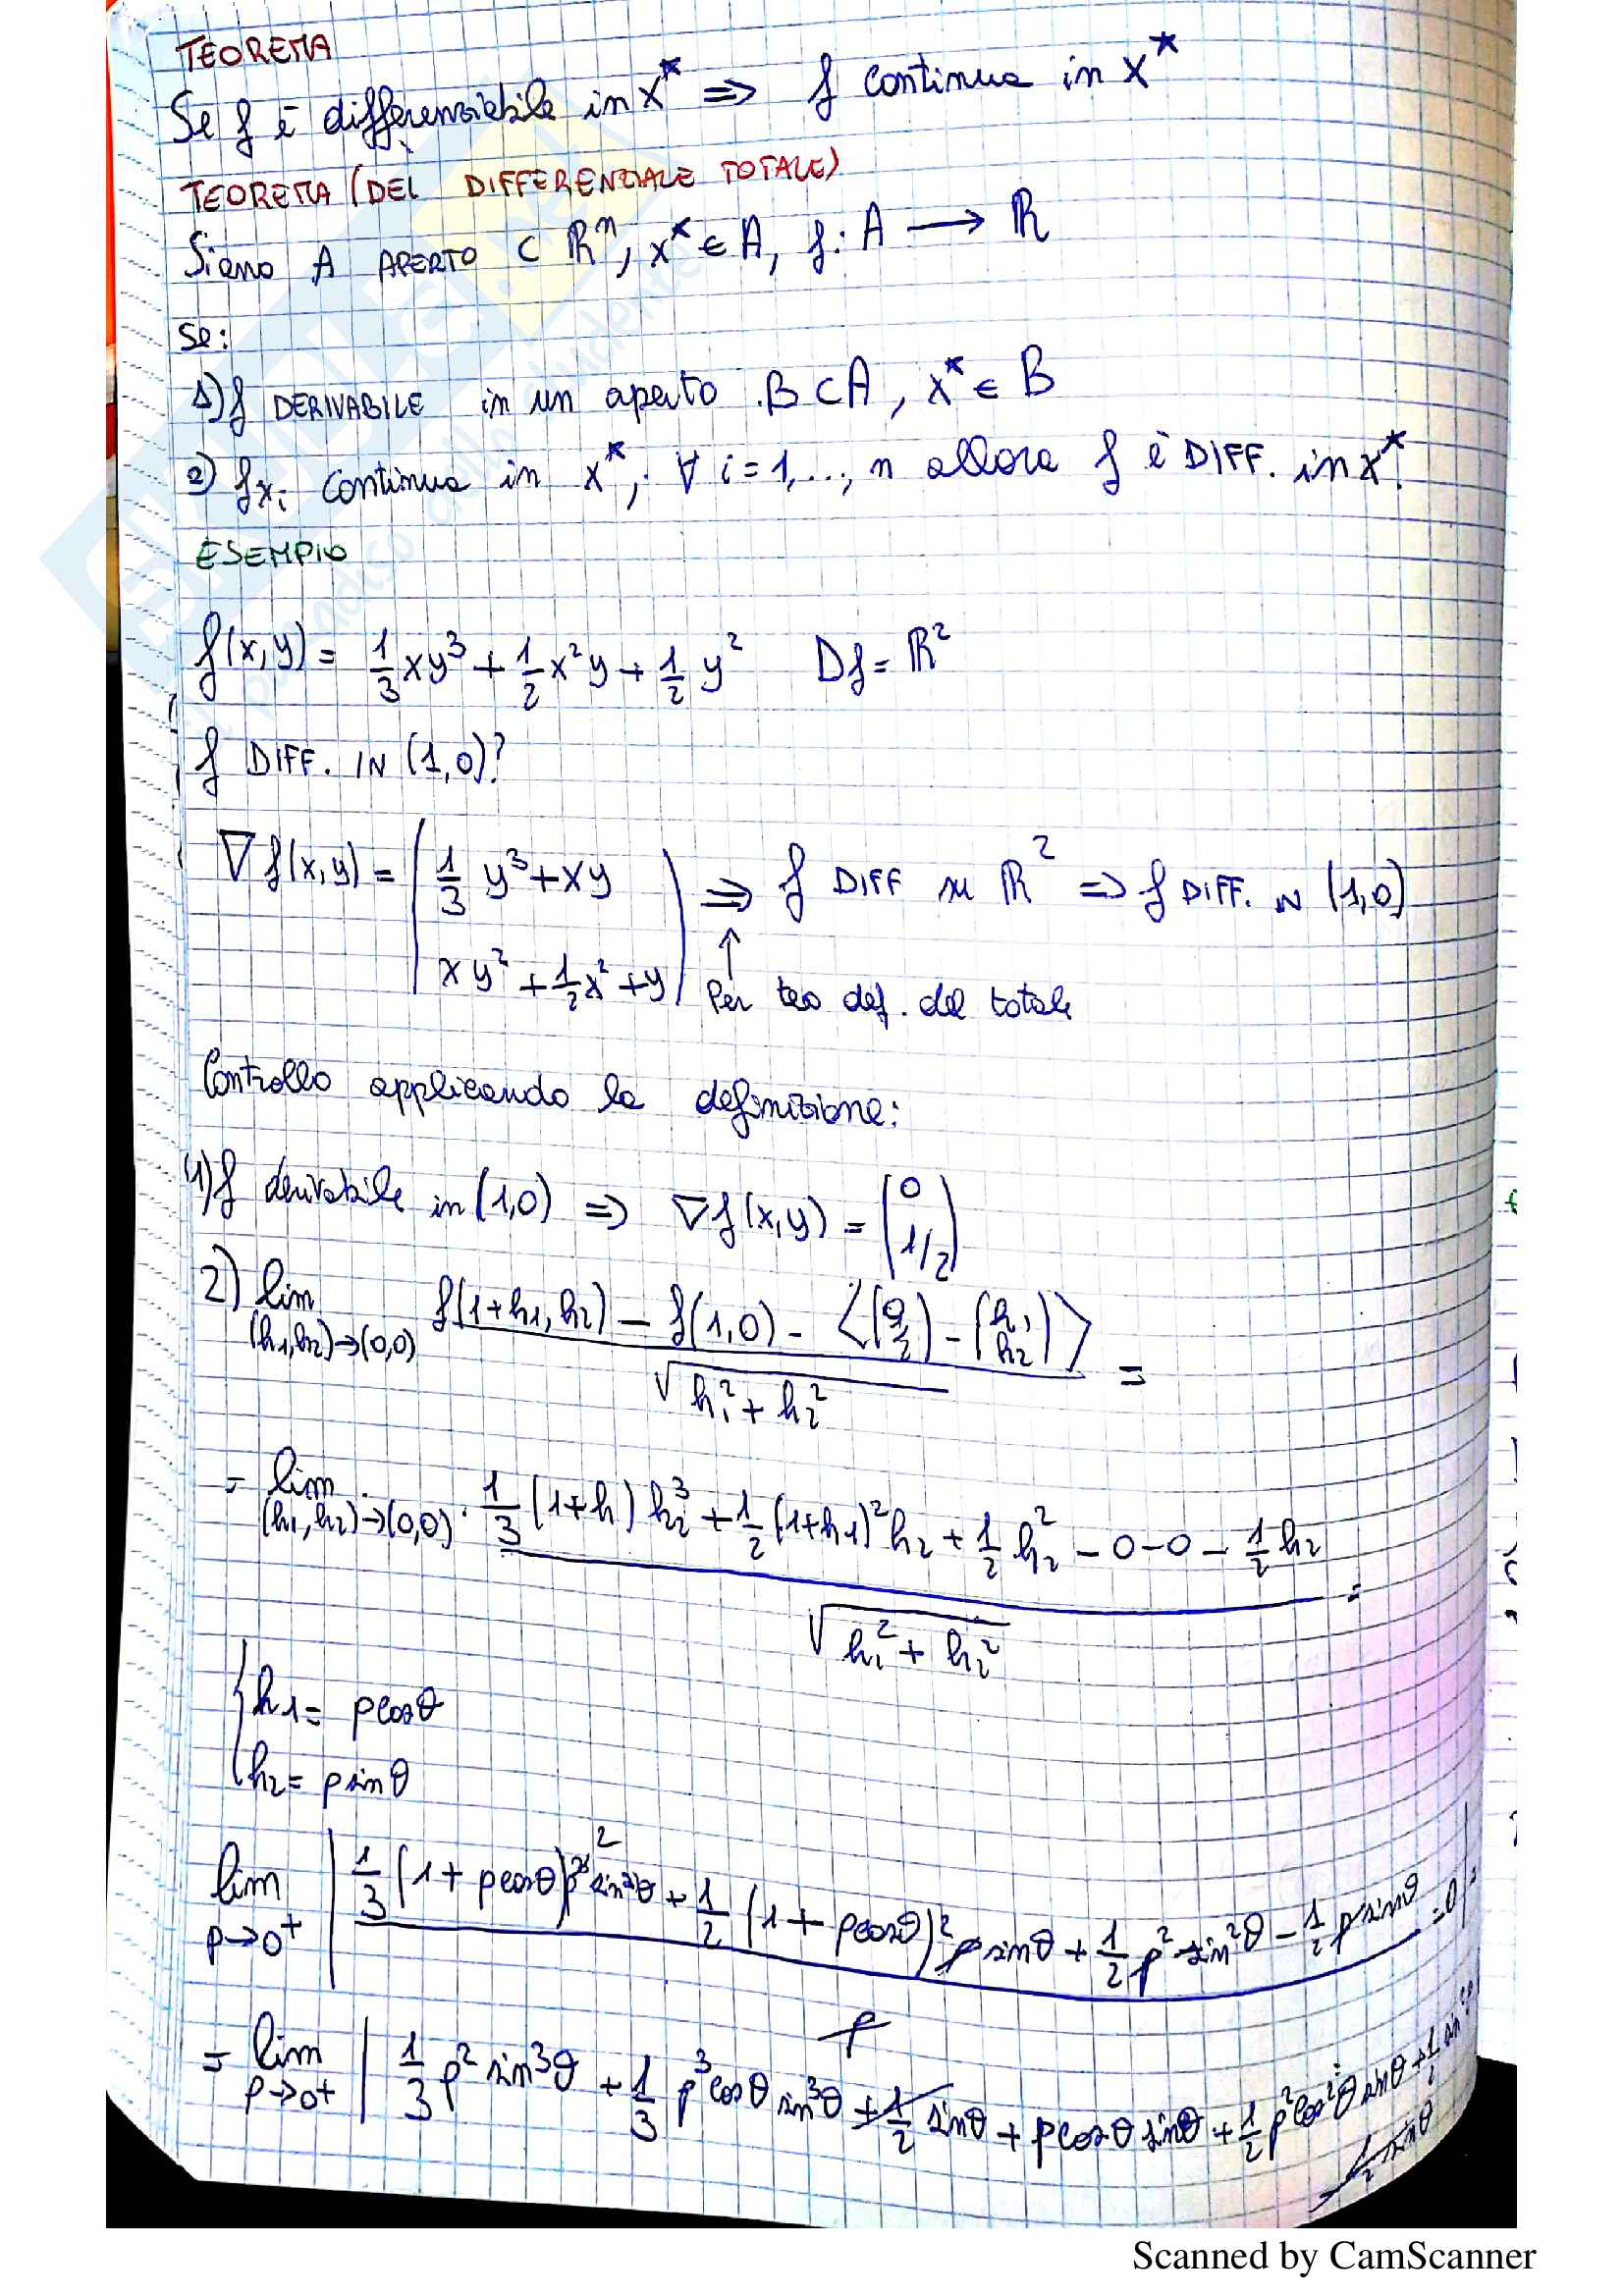 TEOREMA
Se f è differenziabile in x* ⇒ f continua in x*
TEOREMA (DEL DIFFERENZIALE TOTALE)
Siano A APERTO ⊂ ℝⁿ, x* ∈ A, f: A → ℝ
se:
1) f DERIVABILE in un aperto B ⊂ A, x* ∈ B
2) f_xi continua in x*, ∀ i = 1, ..., n allora f è DIFF. in x*.
ESEMPIO
f(x,y) = 1/3 xy³ + 1/2 x²y + 1/2 y² Df = ℝ²
f DIFF. IN (1,0)?
∇f(x,y) = (1/3 y³ + xy
xy² + 1/2 x² + y) ⇒ f DIFF su ℝ² ⇒ f DIFF. IN (1,0)
↑
Per teo def. del totale
Controllo applicando la definizione:
1) f derivabile in (1,0) ⇒ ∇f(x,y) = (0
1/2)
2) lim (h₁,h₂)→(0,0) f(1+h₁, h₂) − f(1,0) − ⟨(0, 1/2) − (h₁, h₂)⟩ / √(h₁² + h₂²) =
= lim (h₁,h₂)→(0,0) 1/3 (1+h) h₂³ + 1/2 (1+h₁)² h₂ + 1/2 h₂² − 0 − 0 − 1/2 h₂ / √(h₁² + h₂²) =
{h₁ = ρcosθ
h₂ = ρsinθ
lim ρ→0⁺ | 1/3 (1 + ρcosθ) ρ² sin³θ + 1/2 (1 + ρcosθ)² ρ sinθ + 1/2 ρ² sin²θ − 1/2 ρ sinθ = 0 | / ρ
= lim ρ→0⁺ | 1/3 ρ² sin³θ + 1/3 ρ³ cosθ sin³θ + 1/2 sinθ + ρcosθ sinθ + 1/2 ρ² cos²θ sinθ + 1/2 sin²
1/2 sinθ
Scanned by CamScanner